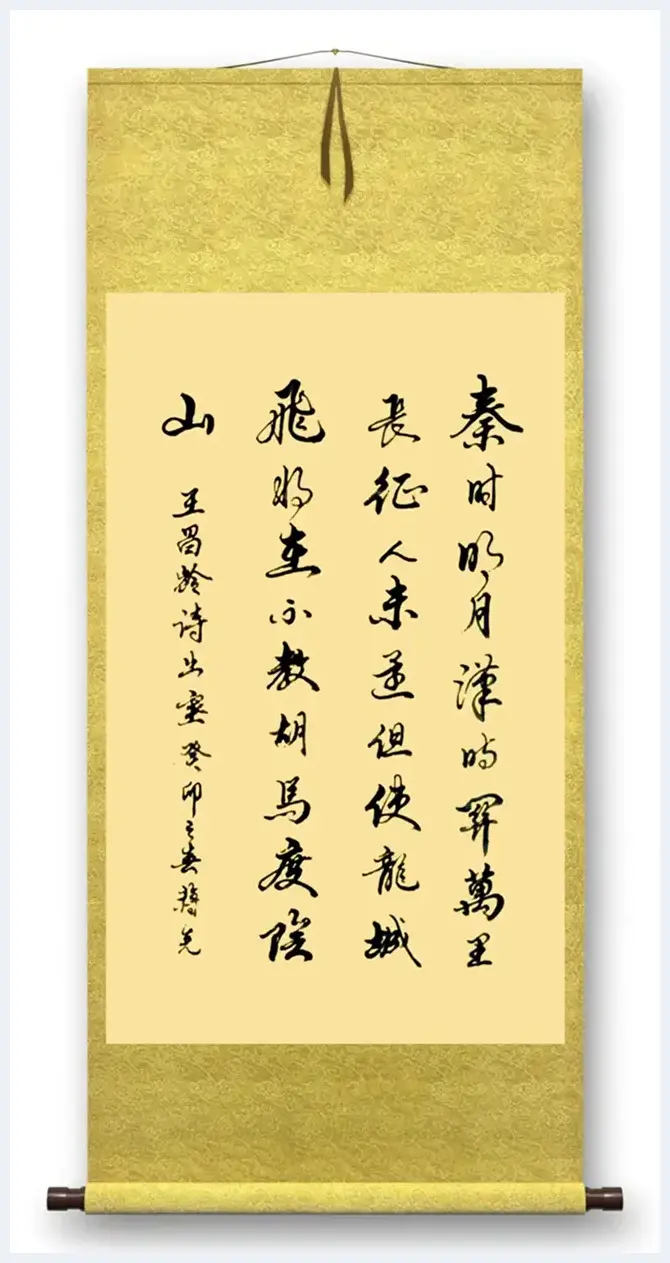 秦时明月漢时關萬里
長征人未還但使龍城
飛将在不教胡馬度陰
山
王昌龄诗出塞癸卯之春